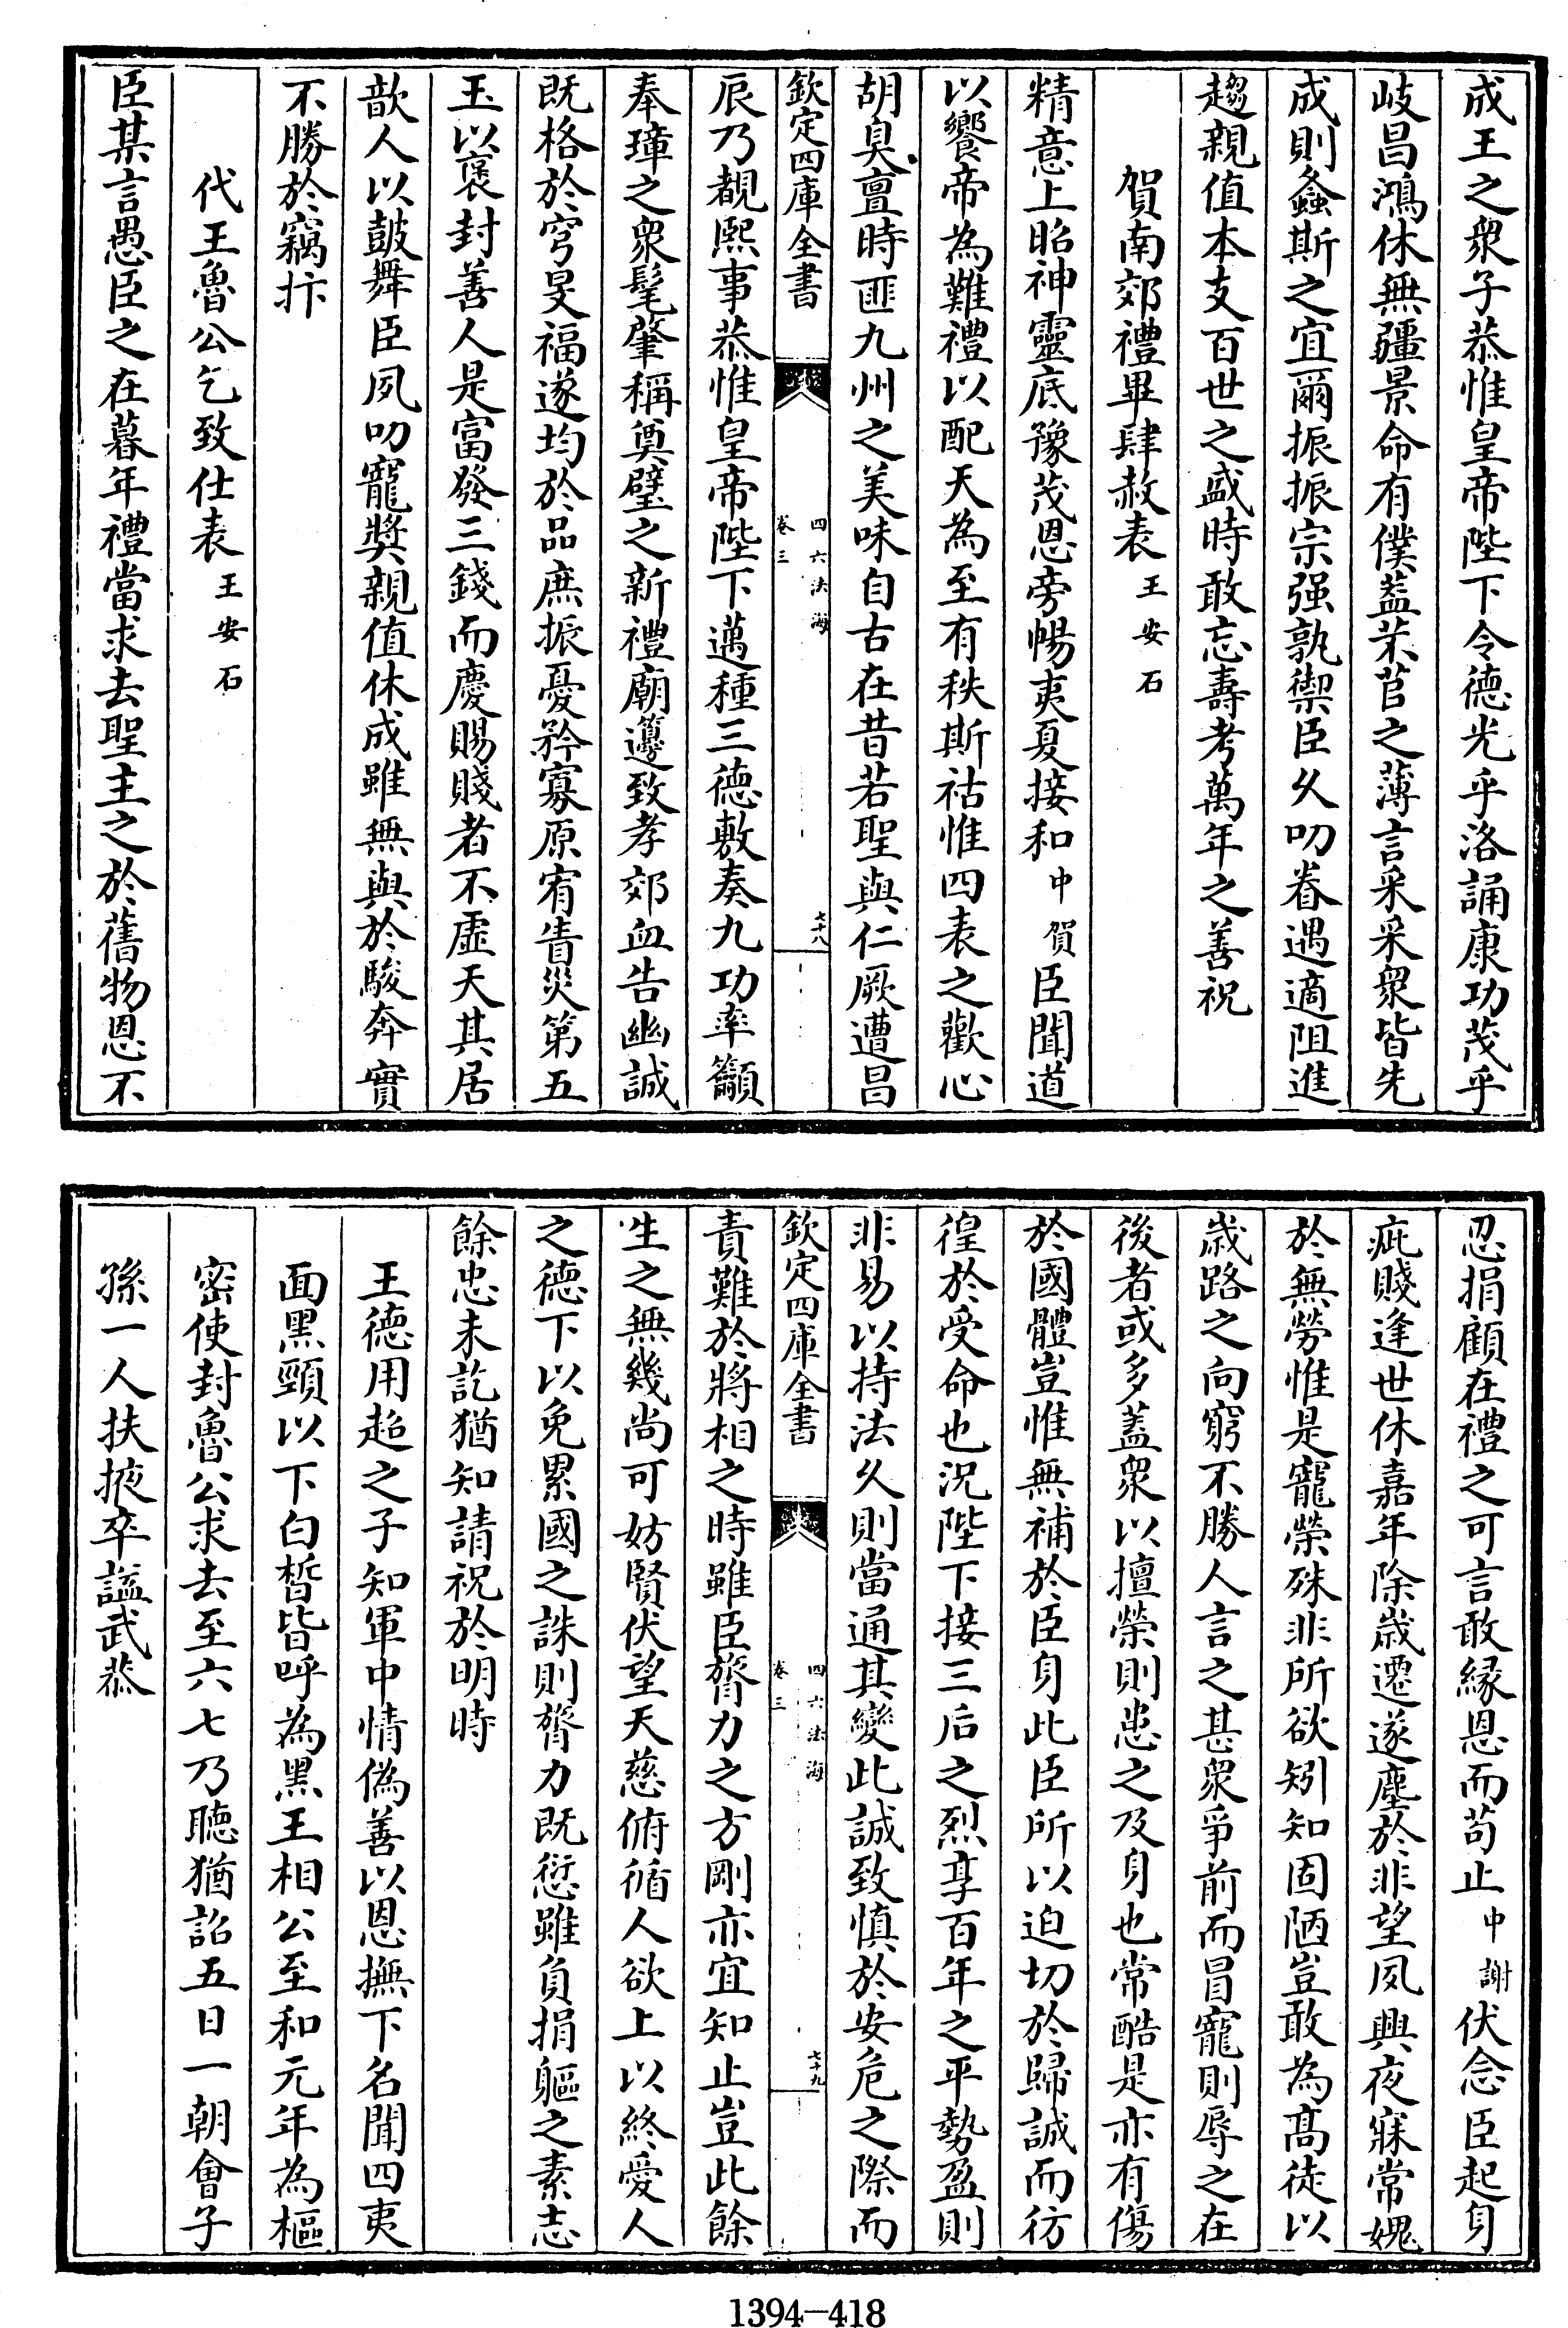 成王之衆子恭惟皇帝陛下令德光乎洛誦康功茂乎
岐昌鴻休無疆景命有僕葢芣苢之薄言采采衆皆先
成則螽斯之宜爾振振宗强孰禦臣久叨眷遇適阻進
趨親值本支百世之盛時敢忘壽考萬年之善祝
賀南郊禮畢肆赦表王安石
精意上昭神靈底豫茂恩旁暢夷夏接和中賀臣聞道
以饗帝為難禮以配天為至有秩斯祜惟四表之歡心
胡臭亶時匪九州之美味自古在昔若聖與仁厥遭昌
欽定四庫全書
四六法海
卷三
七十八
辰乃覩熙事恭惟皇帝陛下邁種三德敷奏九功率籲
奉璋之衆髦肇稱奠璧之新禮廟籩致孝郊血告幽誠
既格於穹旻福遂均於品庶振憂矜寡原宥眚災第五
玉以襃封善人是富發三錢而慶賜賤者不虛天其居
歆人以鼓舞臣夙叨寵獎親值休成雖無與於駿奔實
不勝於竊抃
代王魯公乞致仕表王安石
臣某言愚臣之在暮年禮當求去聖主之於舊物恩不
忍捐顧在禮之可言敢緣恩而苟止中謝伏念臣起身
疵賤逢世休嘉年除歲遷遂塵於非望夙興夜寐常媿
於無勞惟是寵榮殊非所欲矧知固陋豈敢為髙徒以
歳路之向窮不勝人言之甚衆爭前而冒寵則辱之在
後者或多蓋衆以擅榮則患之及身也常酷是亦有傷
於國體豈惟無補於臣身此臣所以迫切於歸誠而彷
徨於受命也況陛下接三后之烈享百年之平勢盈則
非易以持法久則當通其變此誠致慎於安危之際而
欽定四庫全書
四六法海
卷三
七十九
責難於將相之時雖臣膂力之方剛亦宜知止豈此餘
生之無幾尚可妨賢伏望天慈俯循人欲上以終愛人
之德下以免累國之誅則膂力既愆雖負捐軀之素志
餘忠未訖猶知請祝於明時
王德用超之子知軍中情偽善以恩撫下名聞四夷
面黑頸以下白晳皆呼為黑王相公至和元年為樞
密使封魯公求去至六七乃聽猶詔五日一朝會子
孫一人扶掖卒諡武恭
1394-418